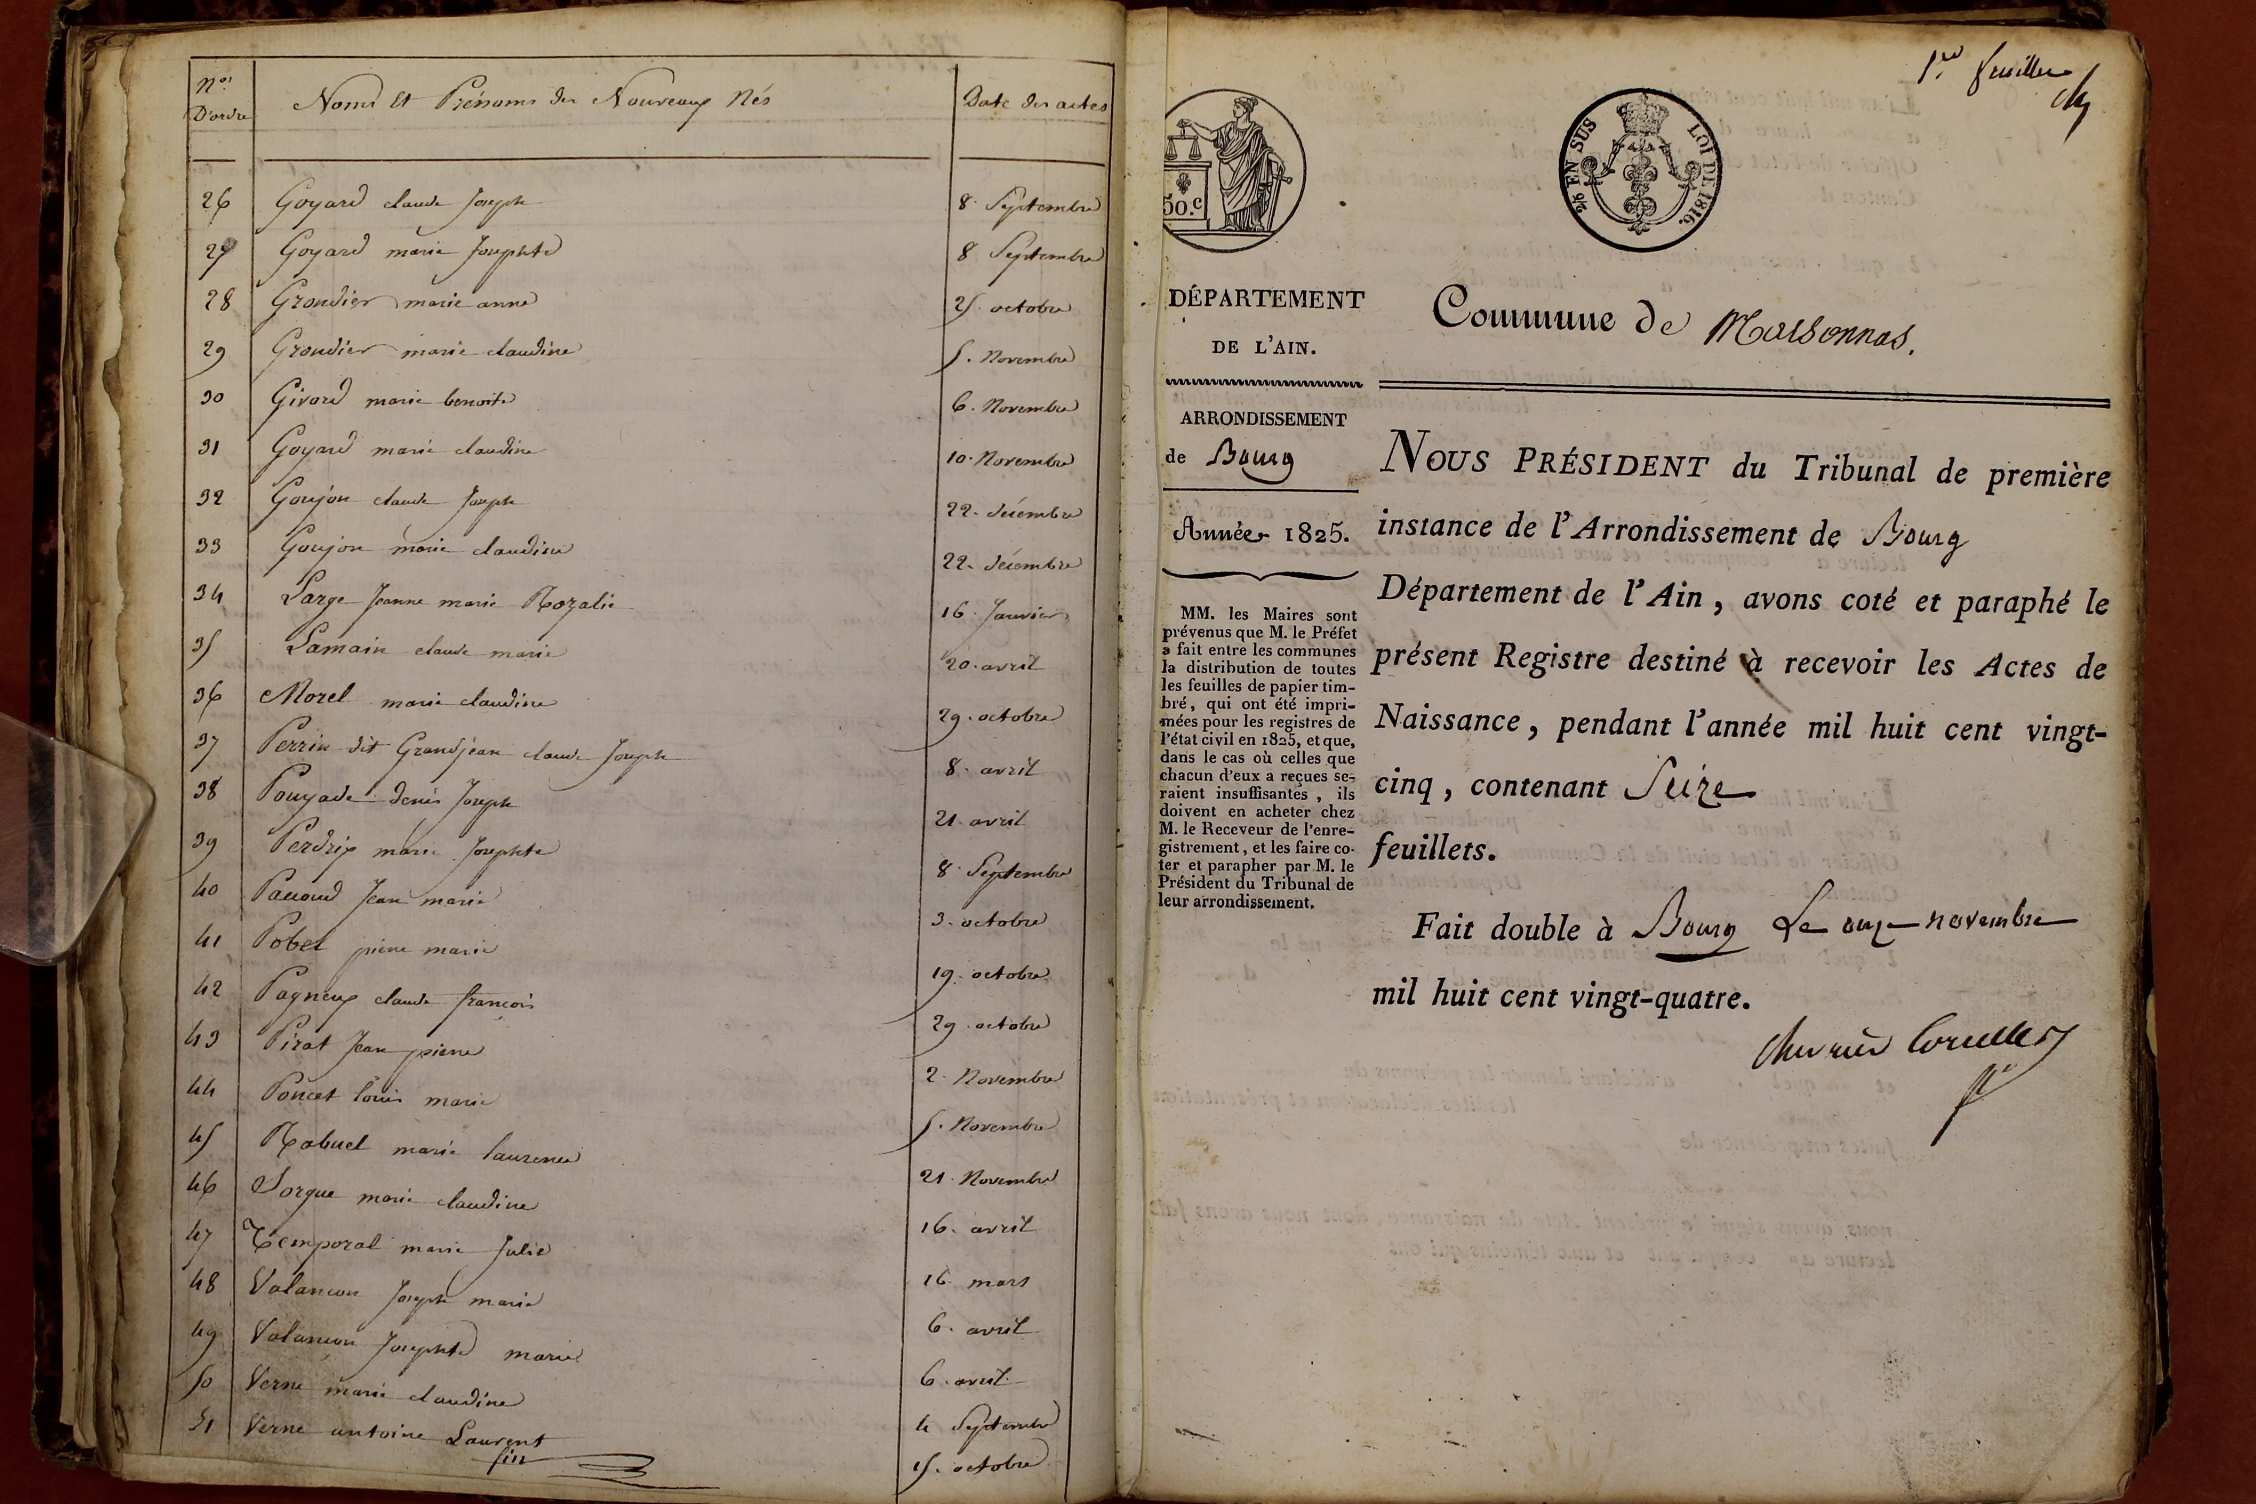 Nos D'ordre | Noms Et Prénoms des Nouveaux Nés | Date des actes
26 Goyard claude Joseph 8. Septembre
27 Goyard marie Josephte 8 Septembre
28 Grandier marie anne 25 octobre
29 Grandier marie claudine 5. Novembre
30 Givord marie benoite 6. Novembre
31 Goyard marie claudine 10. Novembre
32 Goujon claude Joseph 22. décembre
33 Goujon marie claudine 22. décembre
34 Large Jeanne marie Rozalie 16 Janvier
35 Lamain claude marie 20. avril
36 Morel marie claudine 29. octobre
37 Perrin dit Grandjean claude Joseph 8. avril
38 Pouyade denis Joseph 21. avril
39 Perdrix marie Josephte 8 Septembre
40 Pauoud Jean marie 3. octobre
41 Pobel pierre marie 19. octobre
42 Pagneux claude françois 29. octobre
43 Pirat Jean pierre 2. Novembre
44 Poncet louis marie 5. Novembre
45 Rabuel marie laurence 21. Novembre
46 Sorgue marie claudine 16. avril
47 Temporal marie Julie 16 mars
48 Valancon Joseph marie 6. avril
49 Valancon Josephte marie 6. avril
50 Verne marie claudine 4 Septembre
51 Verne antoine Laurent 15. octobre
fin
1er feuillet
50.c
2/6 EN SUS LOI DE 1816.
DÉPARTEMENT
DE L'AIN.
Commune de Marsonnas.
ARRONDISSEMENT
de Bourg
Année 1825.
MM. les Maires sont
prévenus que M. le Préfet
a fait entre les communes
la distribution de toutes
les feuilles de papier tim-
bré, qui ont été impri-
mées pour les registres de
l'état civil en 1825, et que,
dans le cas où celles que
chacun d'eux a reçues se-
raient insuffisantes, ils
doivent en acheter chez
M. le Receveur de l'enre-
gistrement, et les faire co-
ter et parapher par M. le
Président du Tribunal de
leur arrondissement.
NOUS PRÉSIDENT du Tribunal de première
instance de l'Arrondissement de Bourg
Département de l'Ain, avons coté et paraphé le
présent Registre destiné à recevoir les Actes de
Naissance, pendant l'année mil huit cent vingt-
cinq, contenant Seize
feuillets.
Fait double à Bourg Le onze novembre
mil huit cent vingt-quatre.